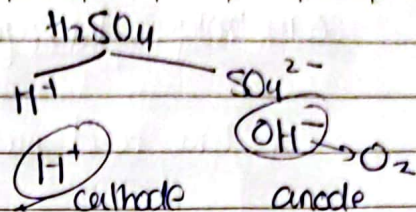 H₂SO₄
H⁺ SO₄²⁻
H⁺ OH⁻ → O₂
cathode anode